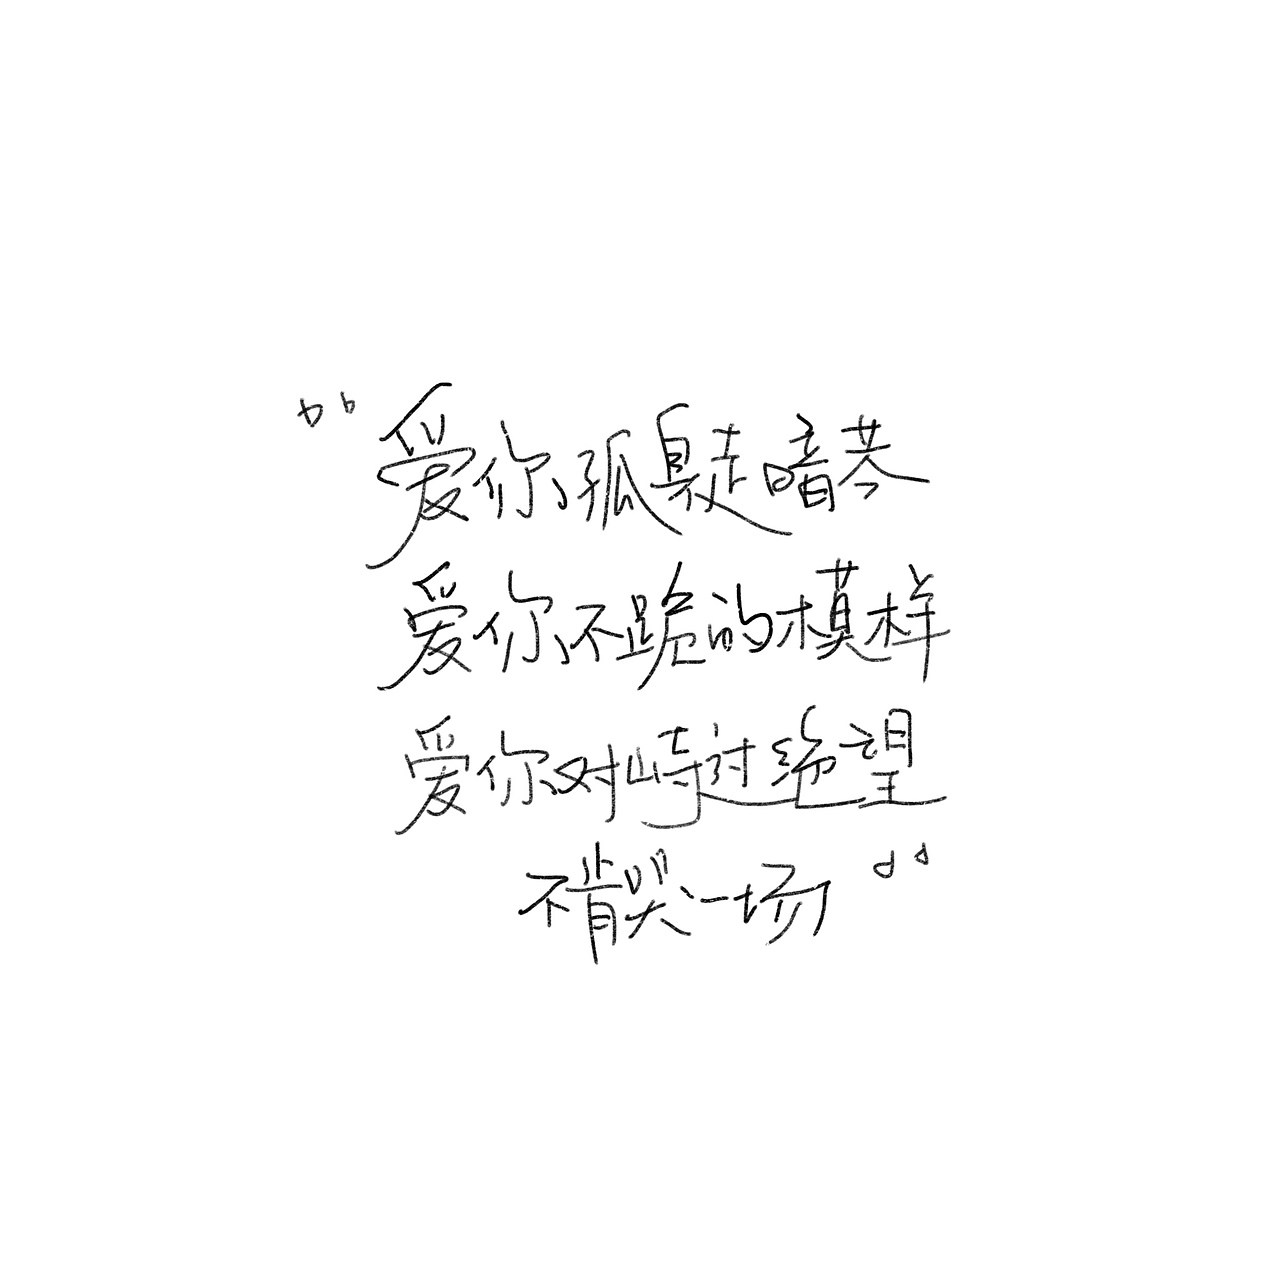 “爱你孤身走暗巷
爱你不跪的模样
爱你对峙过绝望
不肯哭一场”